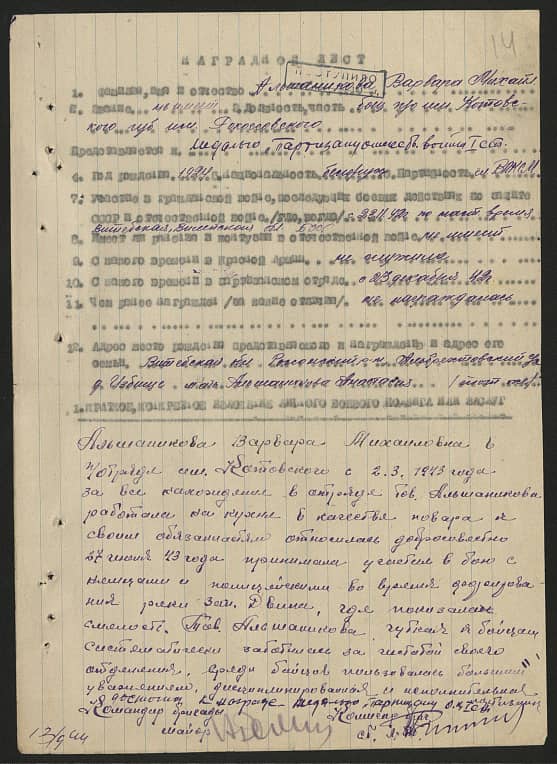 14
НАГРАДНОЙ ЛИСТ
ПОСТУПИЛО
1. Фамилия, имя и отчество Альшаникова Варвара Михайл
2. Звание 3. Должность, часть боец о/о им Котовс-
кого
Представляется к Медалью "Партизану отечеств. войны" I ст.
4. Год рождения 1924 5. Национальность белоруска 6. Партийность чл ВЛКСМ
7. Участие в гражданской войне, последующих боевых действиях по защите
СССР и отечественной войне /где, когда/ с 23.12.42г по наст время
Витебская, Вилейская обл. БССР
8. Имеет ли ранения и контузии в отечественной войне не имеет
9. С какого времени в Красной Армии не служила
10. С какого времени в партизанском отряде с 23 декабря 42г.
11. Чем ранее награжден /за какие отличия/ не награждалась
12. Адрес место рождения представляемого к награждению и адрес его
семьи, Витебская обл
д. Избище мать Альшаникова Анастасия
1. КРАТКОЕ, КОНКРЕТНОЕ ИЗЛОЖЕНИЕ ЛИЧНОГО БОЕВОГО ПОДВИГА ИЛИ ЗАСЛУГ
Альшаникова Варвара Михаиловна в
отряде им. Котовского с 2.3.1943 года
за все нахождение в отряде тов. Альшаникова
работала на кухне в качестве повара к
своим обязаностям относилась добросовестно
27 июня 43 года принимала участие в бою с
немцами и полицейскими во время форсирова-
ния реки Зап. Двина, где показала
смелость. Тов. Альшаникова чуткая к бойцам
систематически заботилась за чистотой своего
отделения, среди бойцов пользовалась большим
уважением, дисциплинированая и исполнительная
достойна к награде медалью "Партизану О.В." I ст.
Командир бригады Комисар бриг.
майор